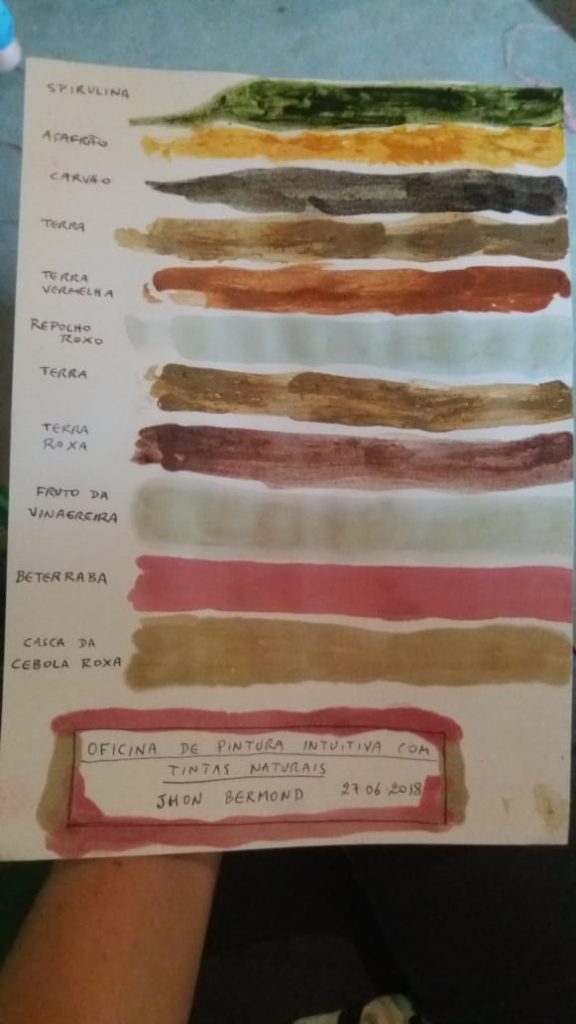 SPIRULINA
ASAFRÃO
CARVÃO
TERRA
TERRA
VERMELHA
REPOLHO
ROXO
TERRA
TERRA
ROXA
FRUTO DA
VINAGREIRA
BETERRABA
CASCA DA
CEBOLA ROXA
OFICINA DE PINTURA INTUITIVA COM
TINTAS NATURAIS
JHON BERMOND 27-06-2018